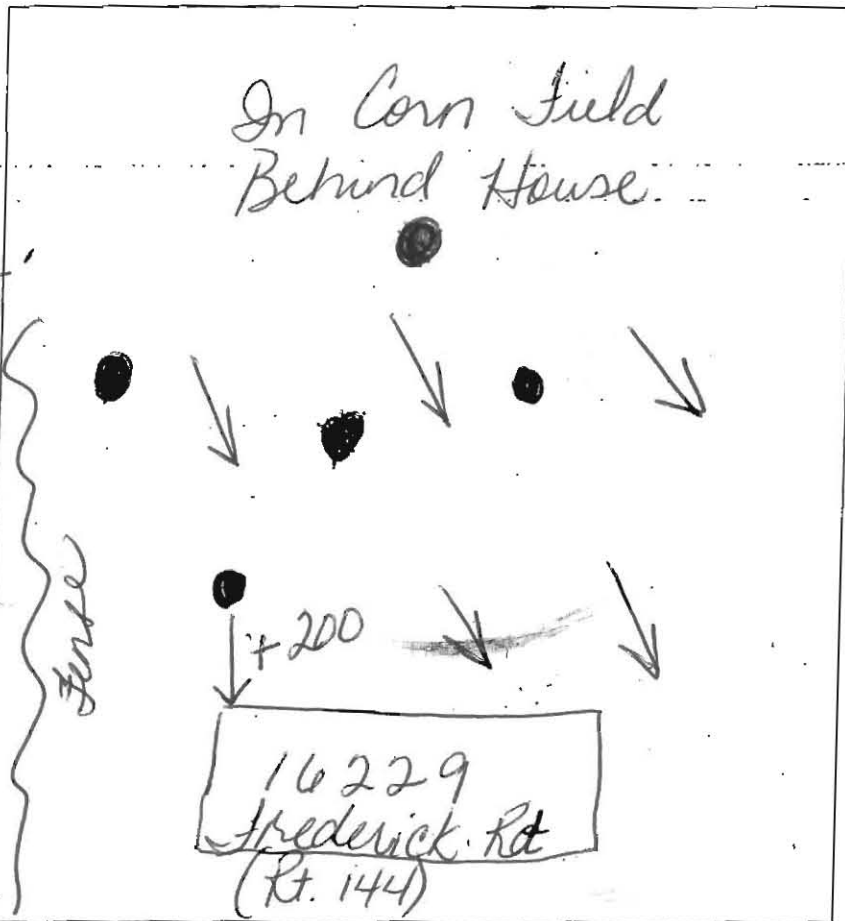 In Corn Field
Behind House.
Fense
+ 200
16229
Frederick. Rd
(Rt. 144)